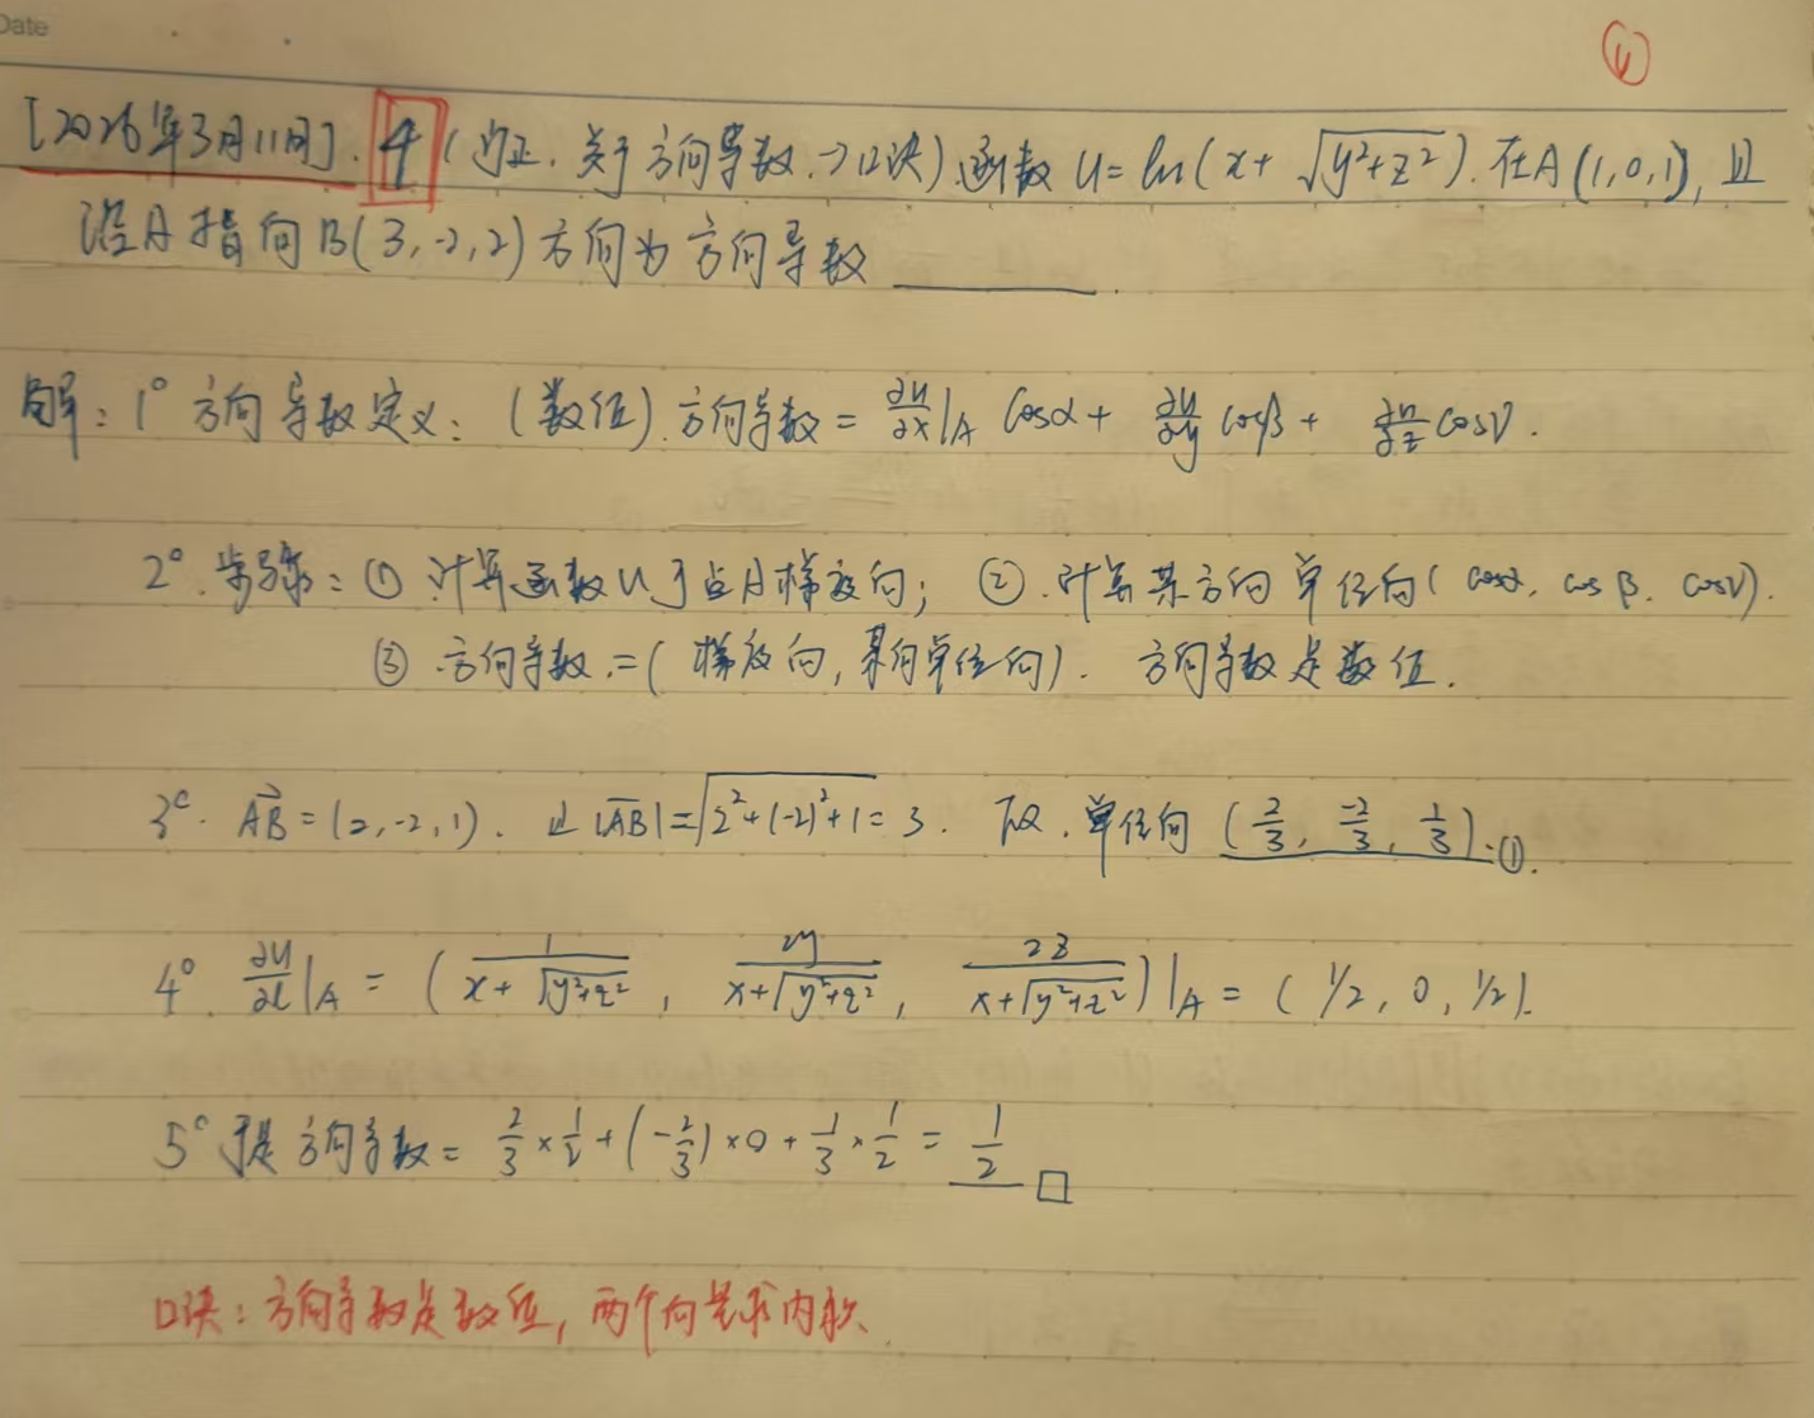 Date
④
[2026年3月11日]. 4 (订正. 关于方向导数.→口诀) 函数 u = ln(x + √(y²+z²)). 在A(1,0,1), 且
沿A指向B(3,-2,2)方向为方向导数 ______.
解: 1° 方向导数定义: (数值). 方向导数 = ∂u/∂x|A cosα + ∂u/∂y cosβ + ∂u/∂z cosγ.
2°. 步骤: ① 计算函数u于点A梯度向; ②. 计算某方向单位向(cosα, cosβ, cosγ).
③ 方向导数.=(梯度向, 某向单位向). 方向导数是数值.
3°. AB→ = (2,-2,1). 且 |AB| = √(2²+(-2)²+1) = 3. 取. 单位向 (2/3, -2/3, 1/3).①.
4°. ∂u/∂l|A = (1/(x+√(y²+z²)), 2y/(x+√(y²+z²)), 2z/(x+√(y²+z²)))|A = (1/2, 0, 1/2).
5° 于是方向导数 = 2/3 × 1/2 + (-2/3) × 0 + 1/3 × 1/2 = 1/2 □
口诀: 方向导数是数值, 两个向量求内积.